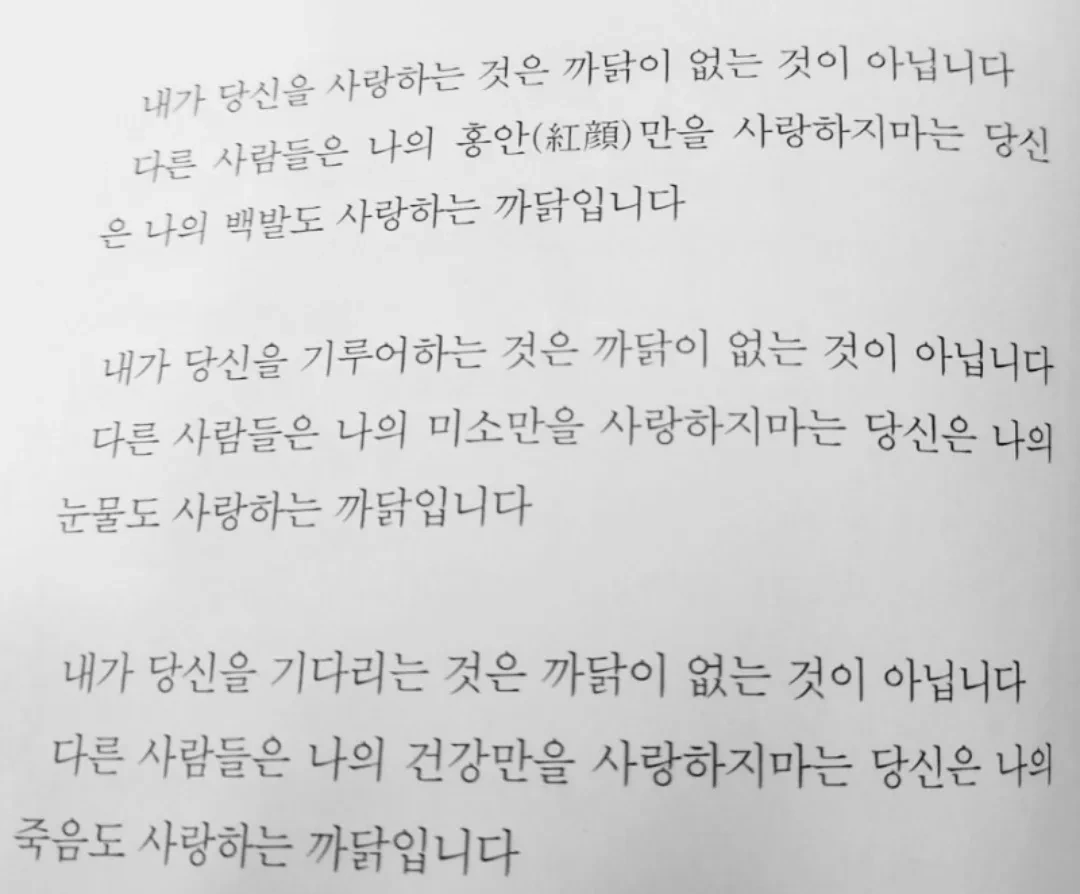 내가 당신을 사랑하는 것은 까닭이 없는 것이 아닙니다
다른 사람들은 나의 홍안(紅顔)만을 사랑하지마는 당신
은 나의 백발도 사랑하는 까닭입니다
내가 당신을 기루어하는 것은 까닭이 없는 것이 아닙니다
다른 사람들은 나의 미소만을 사랑하지마는 당신은 나의
눈물도 사랑하는 까닭입니다
내가 당신을 기다리는 것은 까닭이 없는 것이 아닙니다
다른 사람들은 나의 건강만을 사랑하지마는 당신은 나의
죽음도 사랑하는 까닭입니다